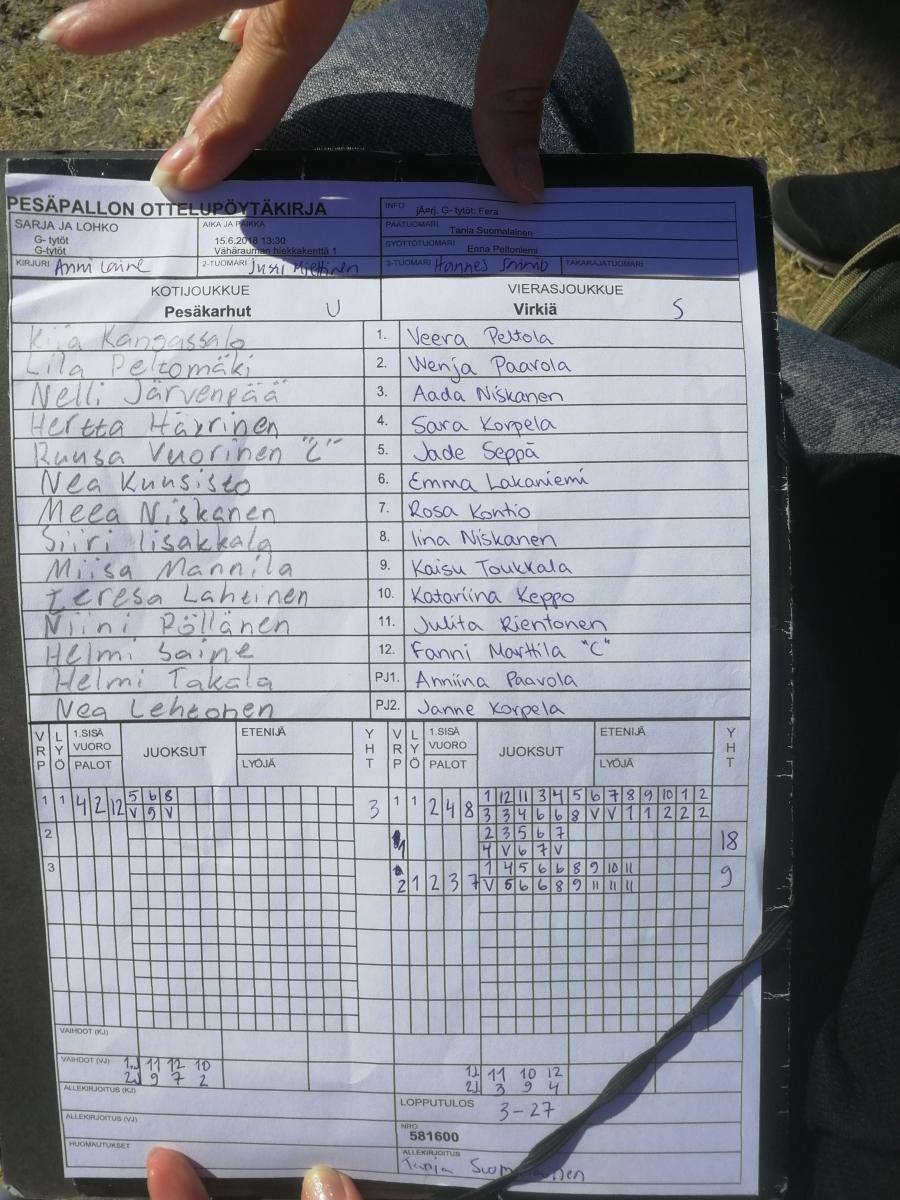 PESÄPALLON OTTELUPÖYTÄKIRJA
INFO jÃ¤rj. G- tytöt: Fera
SARJA JA LOHKO
G- tytöt
G-tytöt
AIKA JA PAIKKA
15.6.2018 13:30
Vähärauman hiekkakenttä 1
PÄÄTUOMARI Tania Suomalainen
SYÖTTÖTUOMARI Enna Peltoniemi
KIRJURI Anni Laine 2-TUOMARI Jussi 3-TUOMARI Hannes TAKARAJATUOMARI
KOTIJOUKKUE VIERASJOUKKUE
Pesäkarhut U Virkiä S
Kiia Kangassalo 1. Veera Peltola
Lila Peltomäki 2. Wenja Paavola
Nelli Järvenpää 3. Aada Niskanen
Hertta Häyrinen 4. Sara Korpela
Ruusa Vuorinen "C" 5. Jade Seppä
Nea Kuusisto 6. Emma Lakaniemi
Meea Niskanen 7. Rosa Kontio
Siiri Iisakkala 8. Iina Niskanen
Miisa Mannila 9. Kaisu Toukkala
Teresa Lahtinen 10. Katariina Keppo
Niini Pöllänen 11. Julita Rientonen
Helmi Saine 12. Fanni Marttila "C"
Helmi Takala PJ1. Anniina Paavola
Nea Lehtonen PJ2. Janne Korpela
VRP LYÖ 1.SISÄ VUORO PALOT JUOKSUT ETENIJÄ LYÖJÄ YHT VRP LYÖ 1.SISÄ VUORO PALOT JUOKSUT ETENIJÄ LYÖJÄ YHT
1 1 4 2 12 5 6 8 3 1 1 2 4 8 1 12 11 3 4 5 6 7 8 9 10 1 2
V 9 V 3 3 4 6 6 8 V V 1 1 2 2 2
2 2 3 5 6 7 18
4 V 6 7 V
3 1 4 5 6 6 8 9 10 11 9
2 1 2 3 7 V 5 6 6 8 9 11 11 11
VAIHDOT (KJ)
VAIHDOT (VJ) 1. 11 12 10 1. 11 10 12
2. 9 7 2 2. 3 9 4
ALLEKIRJOITUS (KJ)
LOPPUTULOS 3-27
ALLEKIRJOITUS (VJ)
NRO
581600
HUOMAUTUKSET
ALLEKIRJOITUS
Tanja